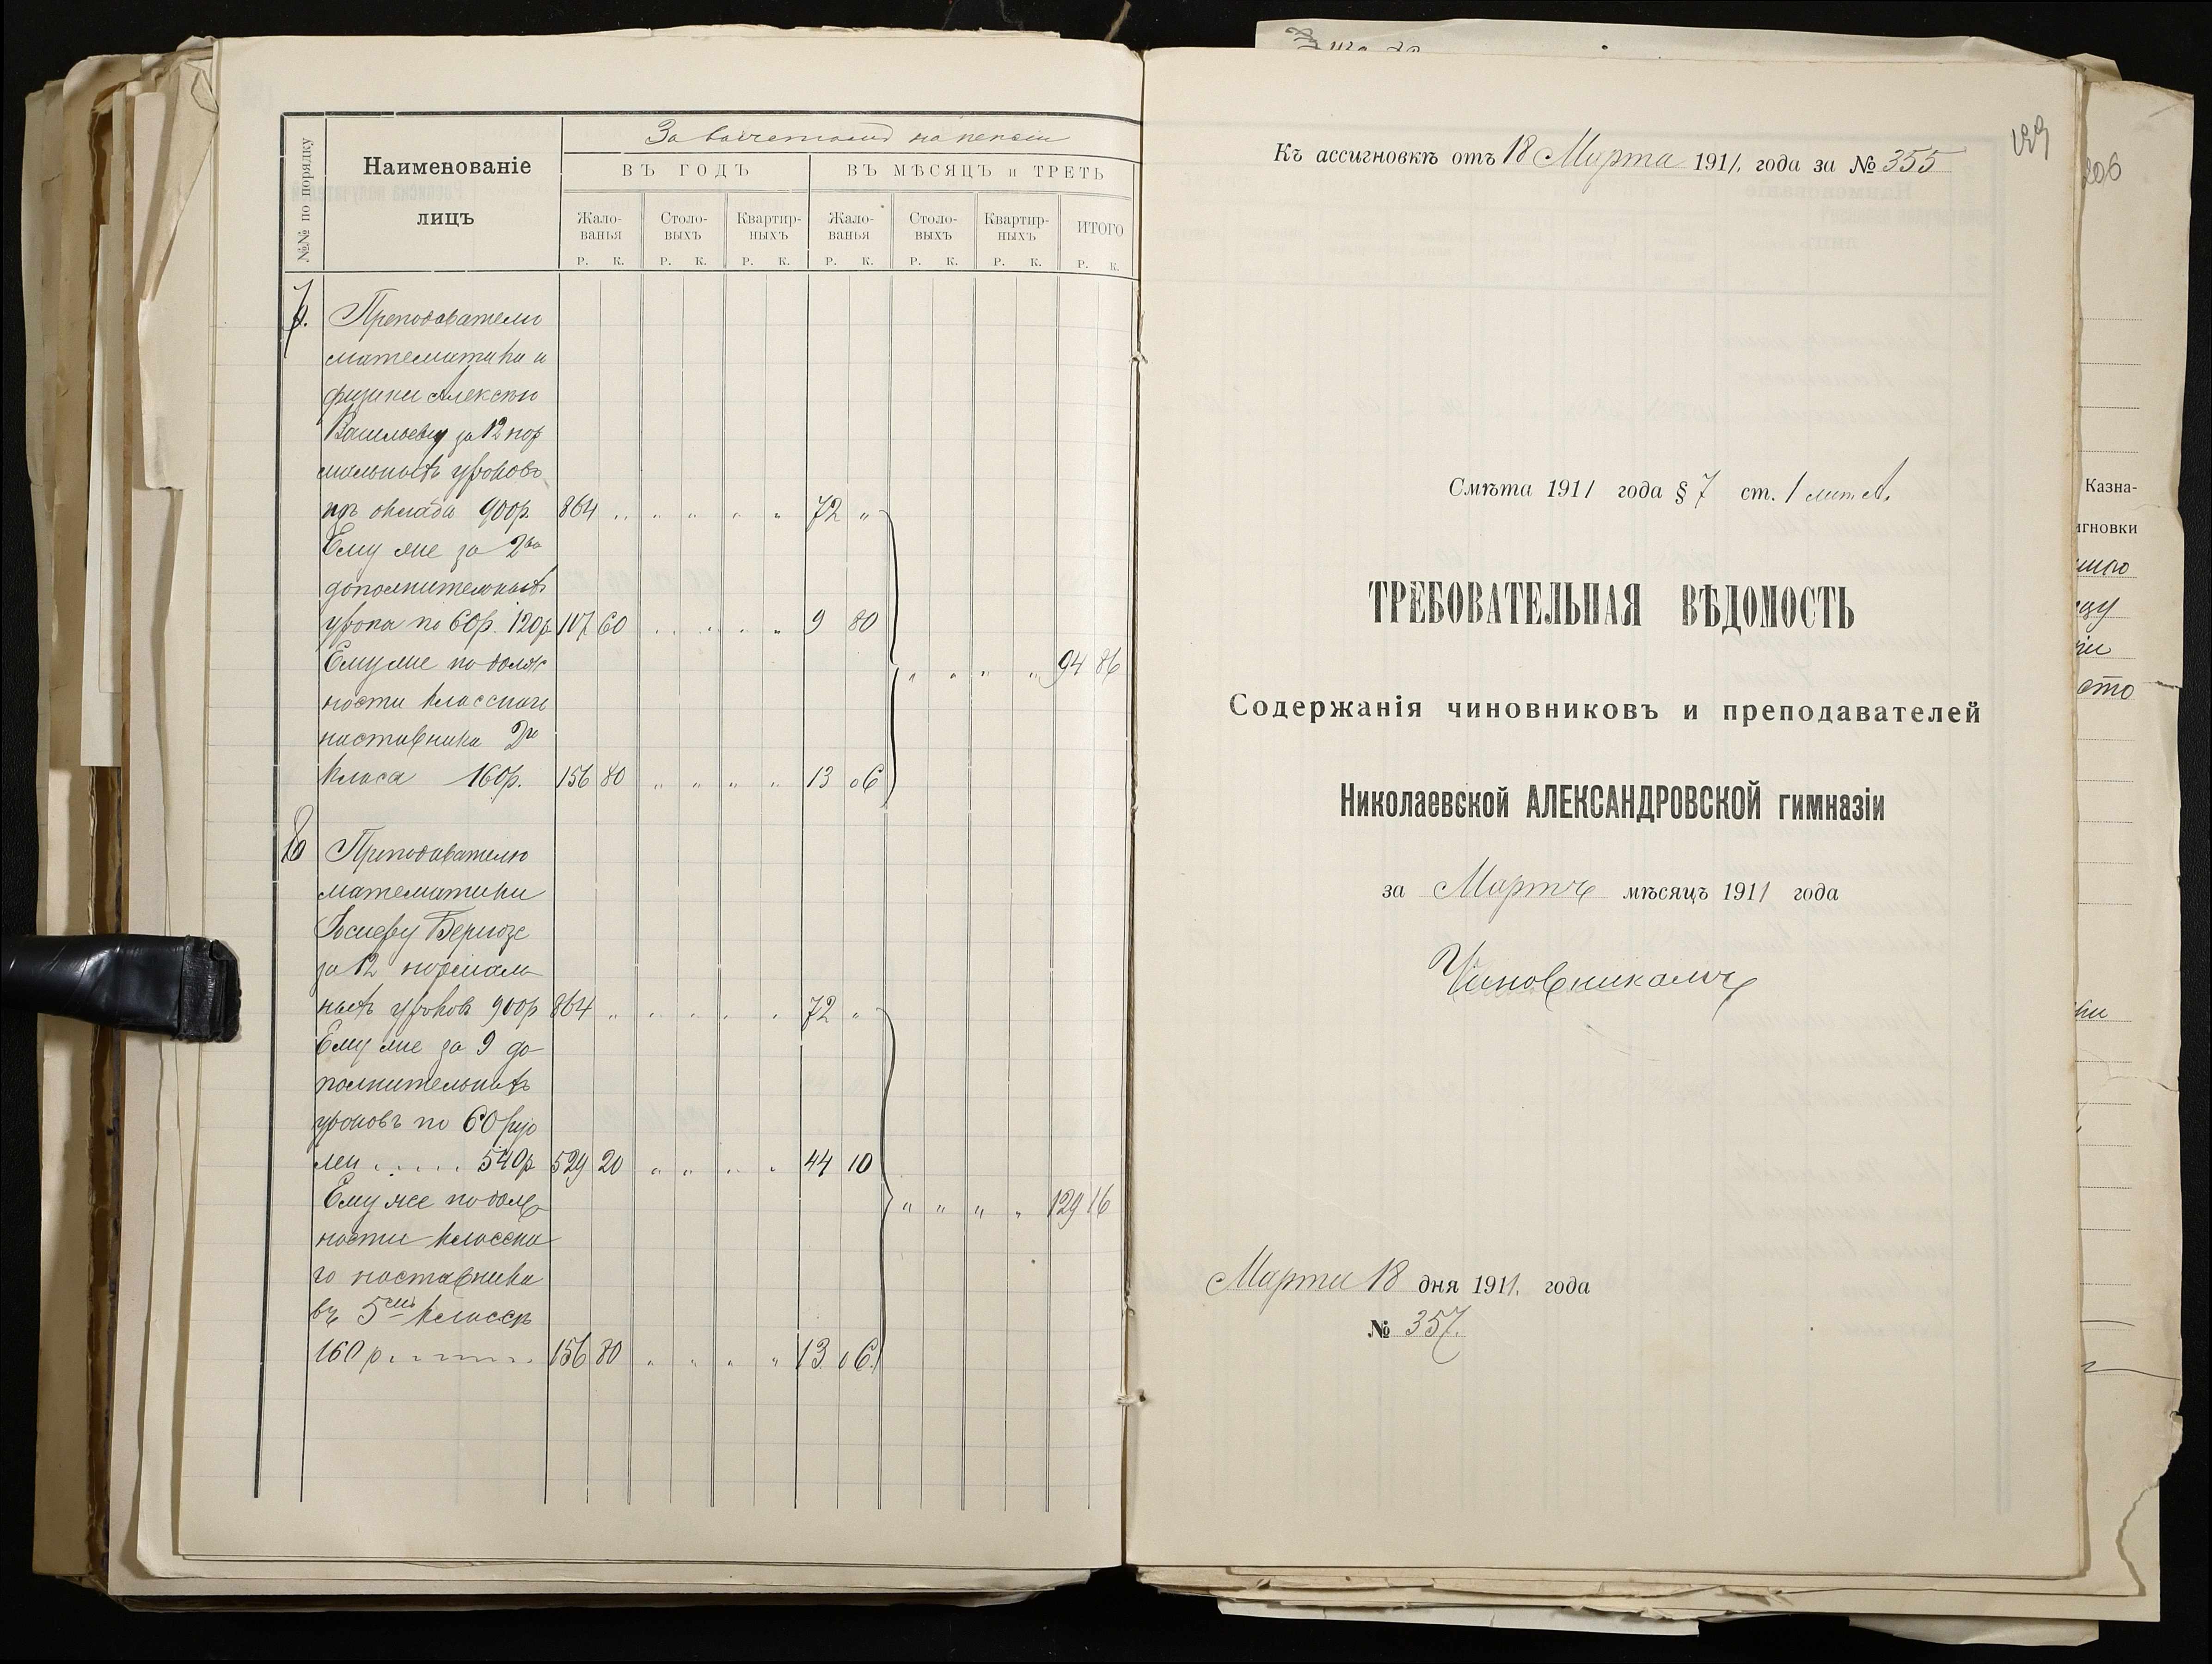 За вычетомъ на пенсiи
№№ по порядку
Наименованіе
лицъ
ВЪ ГОДЪ
ВЪ МѢСЯЦЪ и ТРЕТЬ
Жало-
ванья
Столо-
выхъ
Квартир-
ныхъ
Жало-
ванья
Столо-
выхъ
Квартир-
ныхъ
ИТОГО
Р. К. Р. К. Р. К. Р. К. Р. К. Р. К. Р. К.
7. Преподавателю
математики и
физики Алексѣю
Васильеву за 12 нор
мальныхъ уроковъ
при окладѣ 900р. 864 " " " " " 72 "
Ему же за 2ва
дополнительныхъ
урока по 60р. 120р 117 60 " " " " 9 80
Ему же по долж
" " " " 94 86
ности классного
наставника 2го
класса 160р. 156 80 " " " " 13 06
8 Преподавателю
математики
Іосифу
за 12 нормаль
ныхъ уроковъ 900р 864 " " " " " 72 "
Ему же за 9 до
полнительныхъ
уроковъ по 60 руб
лей . . . . . 540р. 529 20 " " " " 44 10
Ему же по долж
" " " " 129 16
ности классна
го наставника
въ 5омъ классѣ
160 р. 156 80 " " " " 13 06
199
Къ ассигновкѣ отъ 18 Марта 1911 года за № 355
Смѣта 1911 года § 7 ст. 1 лит А.
ТРЕБОВАТЕЛЬНАЯ ВѢДОМОСТЬ
Содержанія чиновниковъ и преподавателей
Николаевской АЛЕКСАНДРОВСКОЙ гимназіи
за Мартъ мѣсяцъ 1911 года
Чиновникамъ
Марта 18 дня 1911. года
№ 357.
206
Казна-
игновки
сто